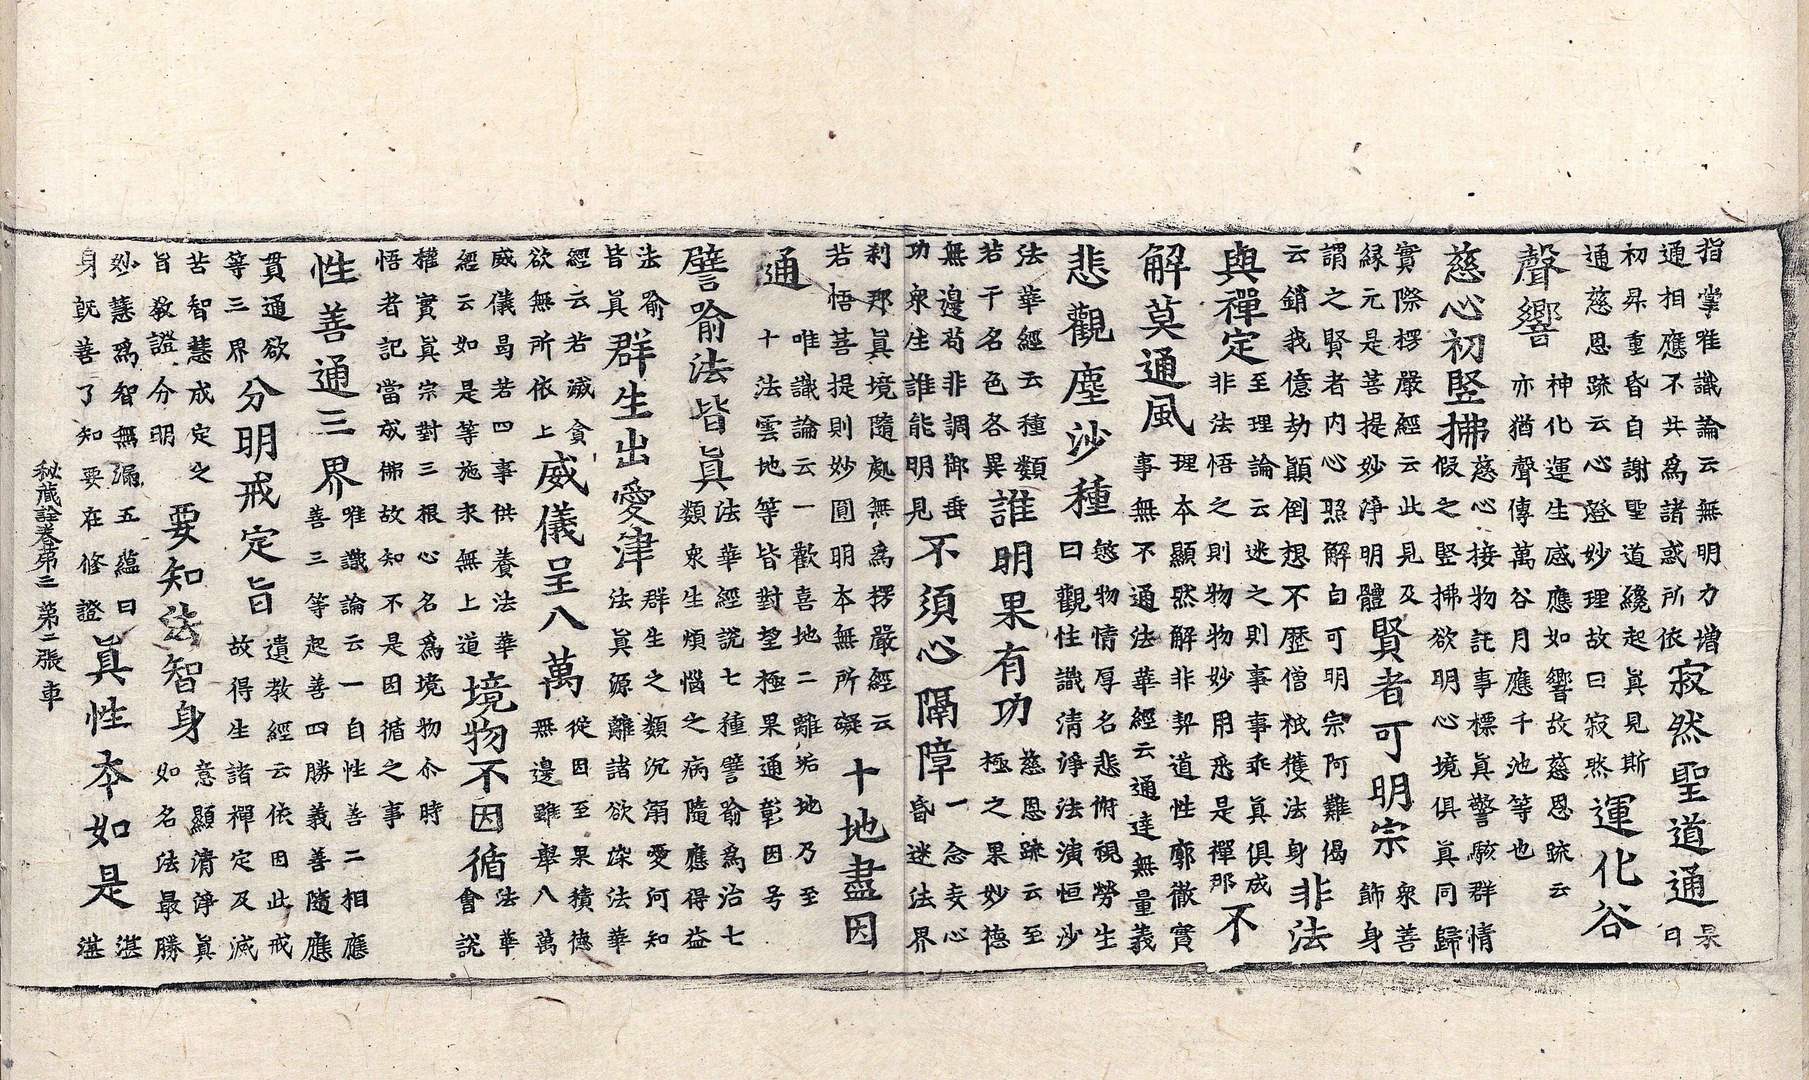 指掌唯識論云無明力增
通相應不共爲諸惑所依
寂然聖道通
杲
日
初昇重昏自謝聖道纔起眞見斯
通慈恩疏云心澄妙理故曰寂然
運化谷
聲響
神化運生感應如響故慈恩疏云
亦猶聲傳萬谷月應千池等也
慈心初竪拂
慈心接物託事標眞警駭群情
假之竪拂欲明心境俱眞同歸
實際楞嚴經云此見及
緣元是菩提妙淨明體
賢者可明宗
衆善
飾身
謂之賢者内心照解自可明宗阿難偈
云銷我億劫顚倒想不歷僧祇獲法身
非法
與禪定
至理論云迷之則事事乖眞俱成
非法悟之則物物妙用悉是禪那
不
解莫通風
理本顯然解非契道性廓徹實
事無不通法華經云通達無量義
悲觀塵沙種
慜物情厚名悲俯視勞生
曰觀性識清淨法演恒沙
法華經云種類
若干名色各異
誰明果有功
慈恩疏云至
極之果妙德
無邊苟非調御垂
功衆生誰能明見
不須心隔障
一念妄心
昏迷法界
刹那眞境隨處無爲楞嚴經云
若悟菩提則妙圓明本無所礙
十地盡因
通
唯識論云一歡喜地二離垢地乃至
十法雲地等皆對望極果通彰因号
譬喻法皆眞
法華經說七種譬喻爲治七
類衆生煩惱之病隨應得益
法喻
皆眞
群生出愛津
群生之類沉溺愛河知
法眞源離諸欲染法華
經云若滅貪
欲無所依上
威儀呈八萬
從因至果積德
無邊雖舉八萬
威儀曷若四事供養法華
經云如是等施求無上道
境物不因循
法華
會說
權實眞宗對三根心名爲境物尒時
悟者記當成佛故知不是因循之事
性善通三界
唯識論云一自性善二相應
善三等起善四勝義善隨應
貫通欲
等三界
分明戒定旨
遺教經云依因此戒
故得生諸禪定及滅
苦智慧成定之
旨敎證分明
要知法智身
意顯清淨眞
如名法最勝
妙慧爲智無漏五蘊曰
身旣善了知要在修證
眞性本如是
湛
湛
秘藏詮卷第三 第二張 車